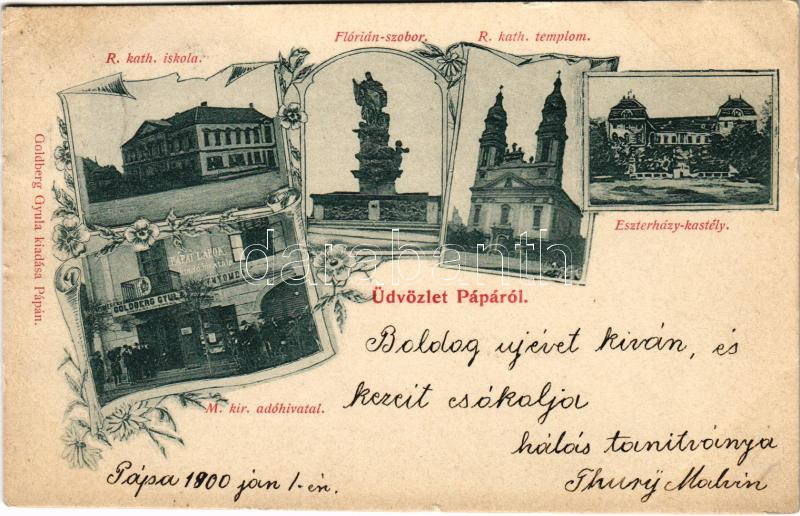 Flórián-szobor.
R. kath. templom.
R. kath. iskola.
Goldberg Gyula kiadása Pápán.
PÁPAI LAPOK
GOLDBERG GYULA
Eszterházy-kastély.
darabanth
Üdvözlet Pápáról.
M. kir. adóhivatal.
Boldog ujévet kiván, és
kezeit csókalja
hálás tanitványa
Thurÿ Malvin
Pápa 1900 ján 1-én.